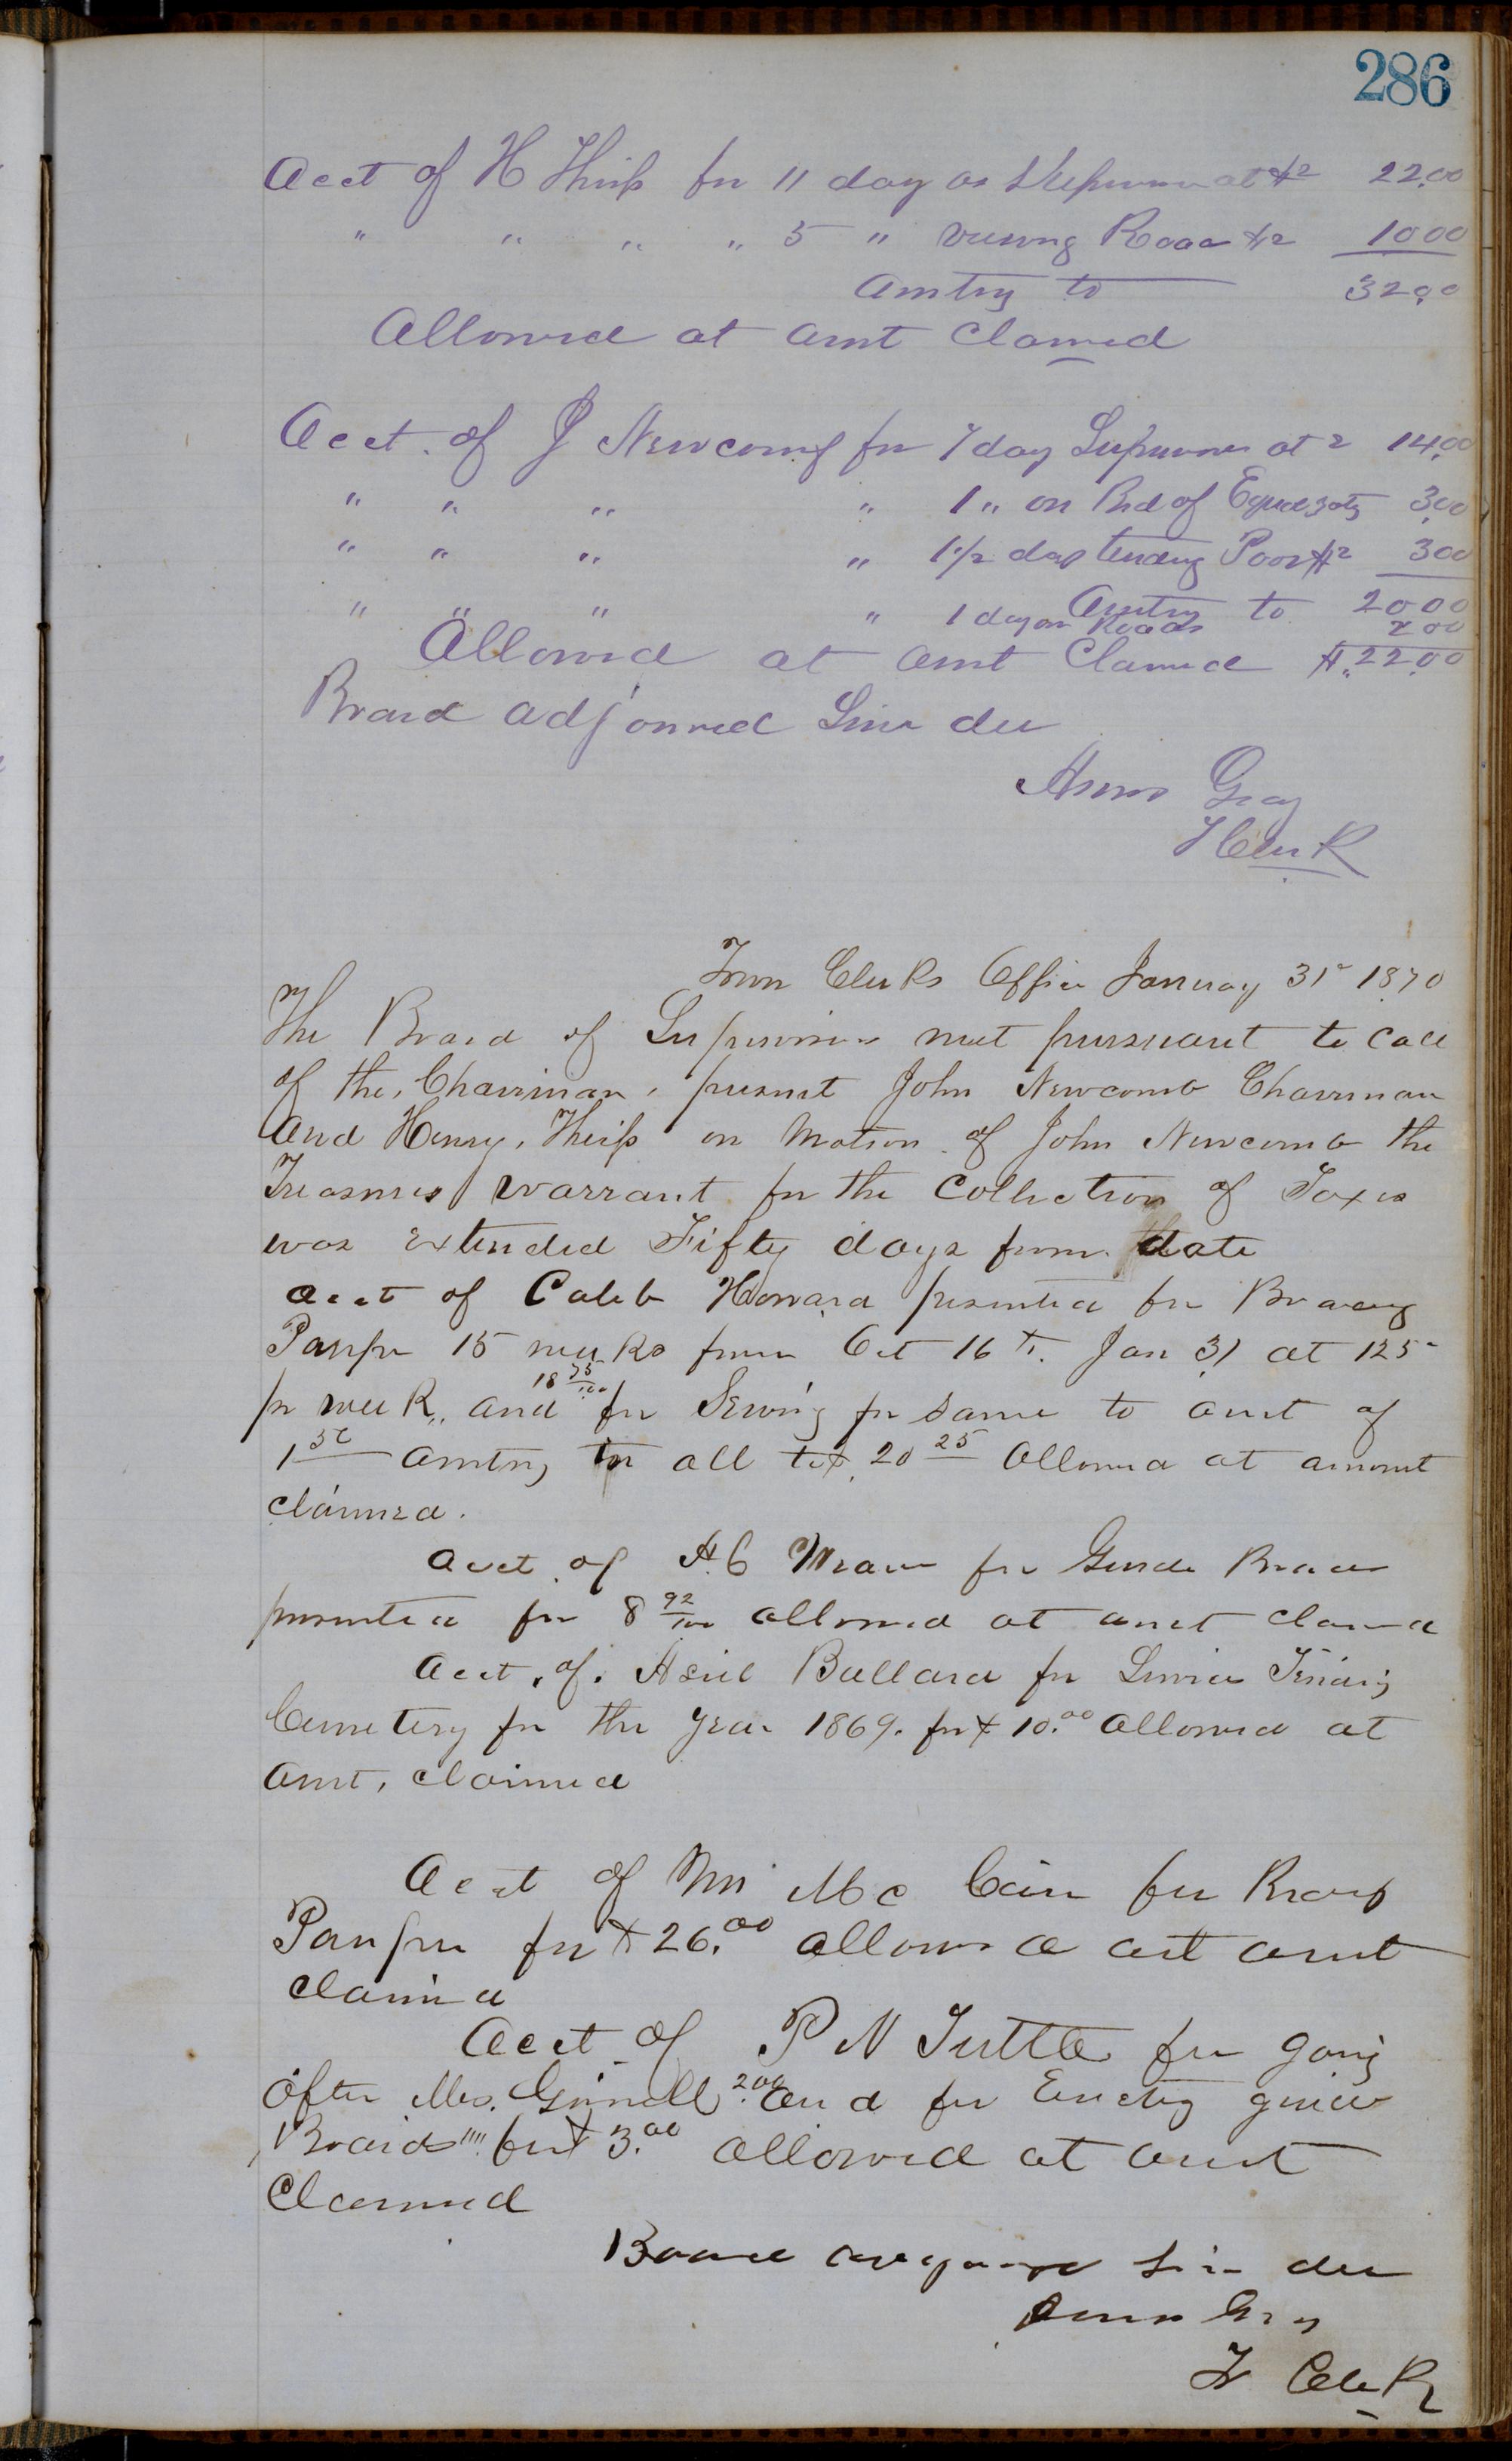 286
Acct of H Theiss for 11 day as Supervisor at $2 22.00
" " " " 5 " viewing Road $2 10 00
Amting to 32.00
Allowed at amt Clamed
Acct. of J Newcomb for 7 day Supervisor at 2 14.00
" " " " 1 " on Brd of 3.00
" " " " 1 1/2 day tending Poor $2 3 00
Amting to 20 00
" " " " 1 day on Roads 2 00
Allowed at amt Clamed $ 22.00
Board adjourned Sine die
Amos Gray
T Clerk
Town Clerks Office January 31st 1870
The Board of Supervisors met pursuant to call
of the Chairman, present John Newcomb Chairman
And Henry Theiss on Motion of John Newcomb the
Treasurers Warrant for the Collection of Taxes
was Extended Fifty days from date
Acct of Caleb Howard presented for
Pauper 15 weeks from Oct 16 to Jan 31 at 125
pr week, and for Sewing for same to amt of
18 75/100
1 50 amting in all to $ 20 25 Allowed at amount
claimed.
Acct of A C for Guide Boards
presented for 8 92/100 allowed at amt claimed
Acct. of. Asiel Ballard for Service
Cemetery for the year 1869. for $ 10.00 Allowed at
Amt, claimed
Acct of Wm Mc Cain for
Pauper for $ 26.00 allowed at amt
claimed
Acct of P N Tuttle for going
After Mrs. Grinnell 2.00 and for Erecting guide
Boards "" for $ 3.00 allowed at amt
Clamed
Board adjourned Sine die
Amos Gray
T Clerk